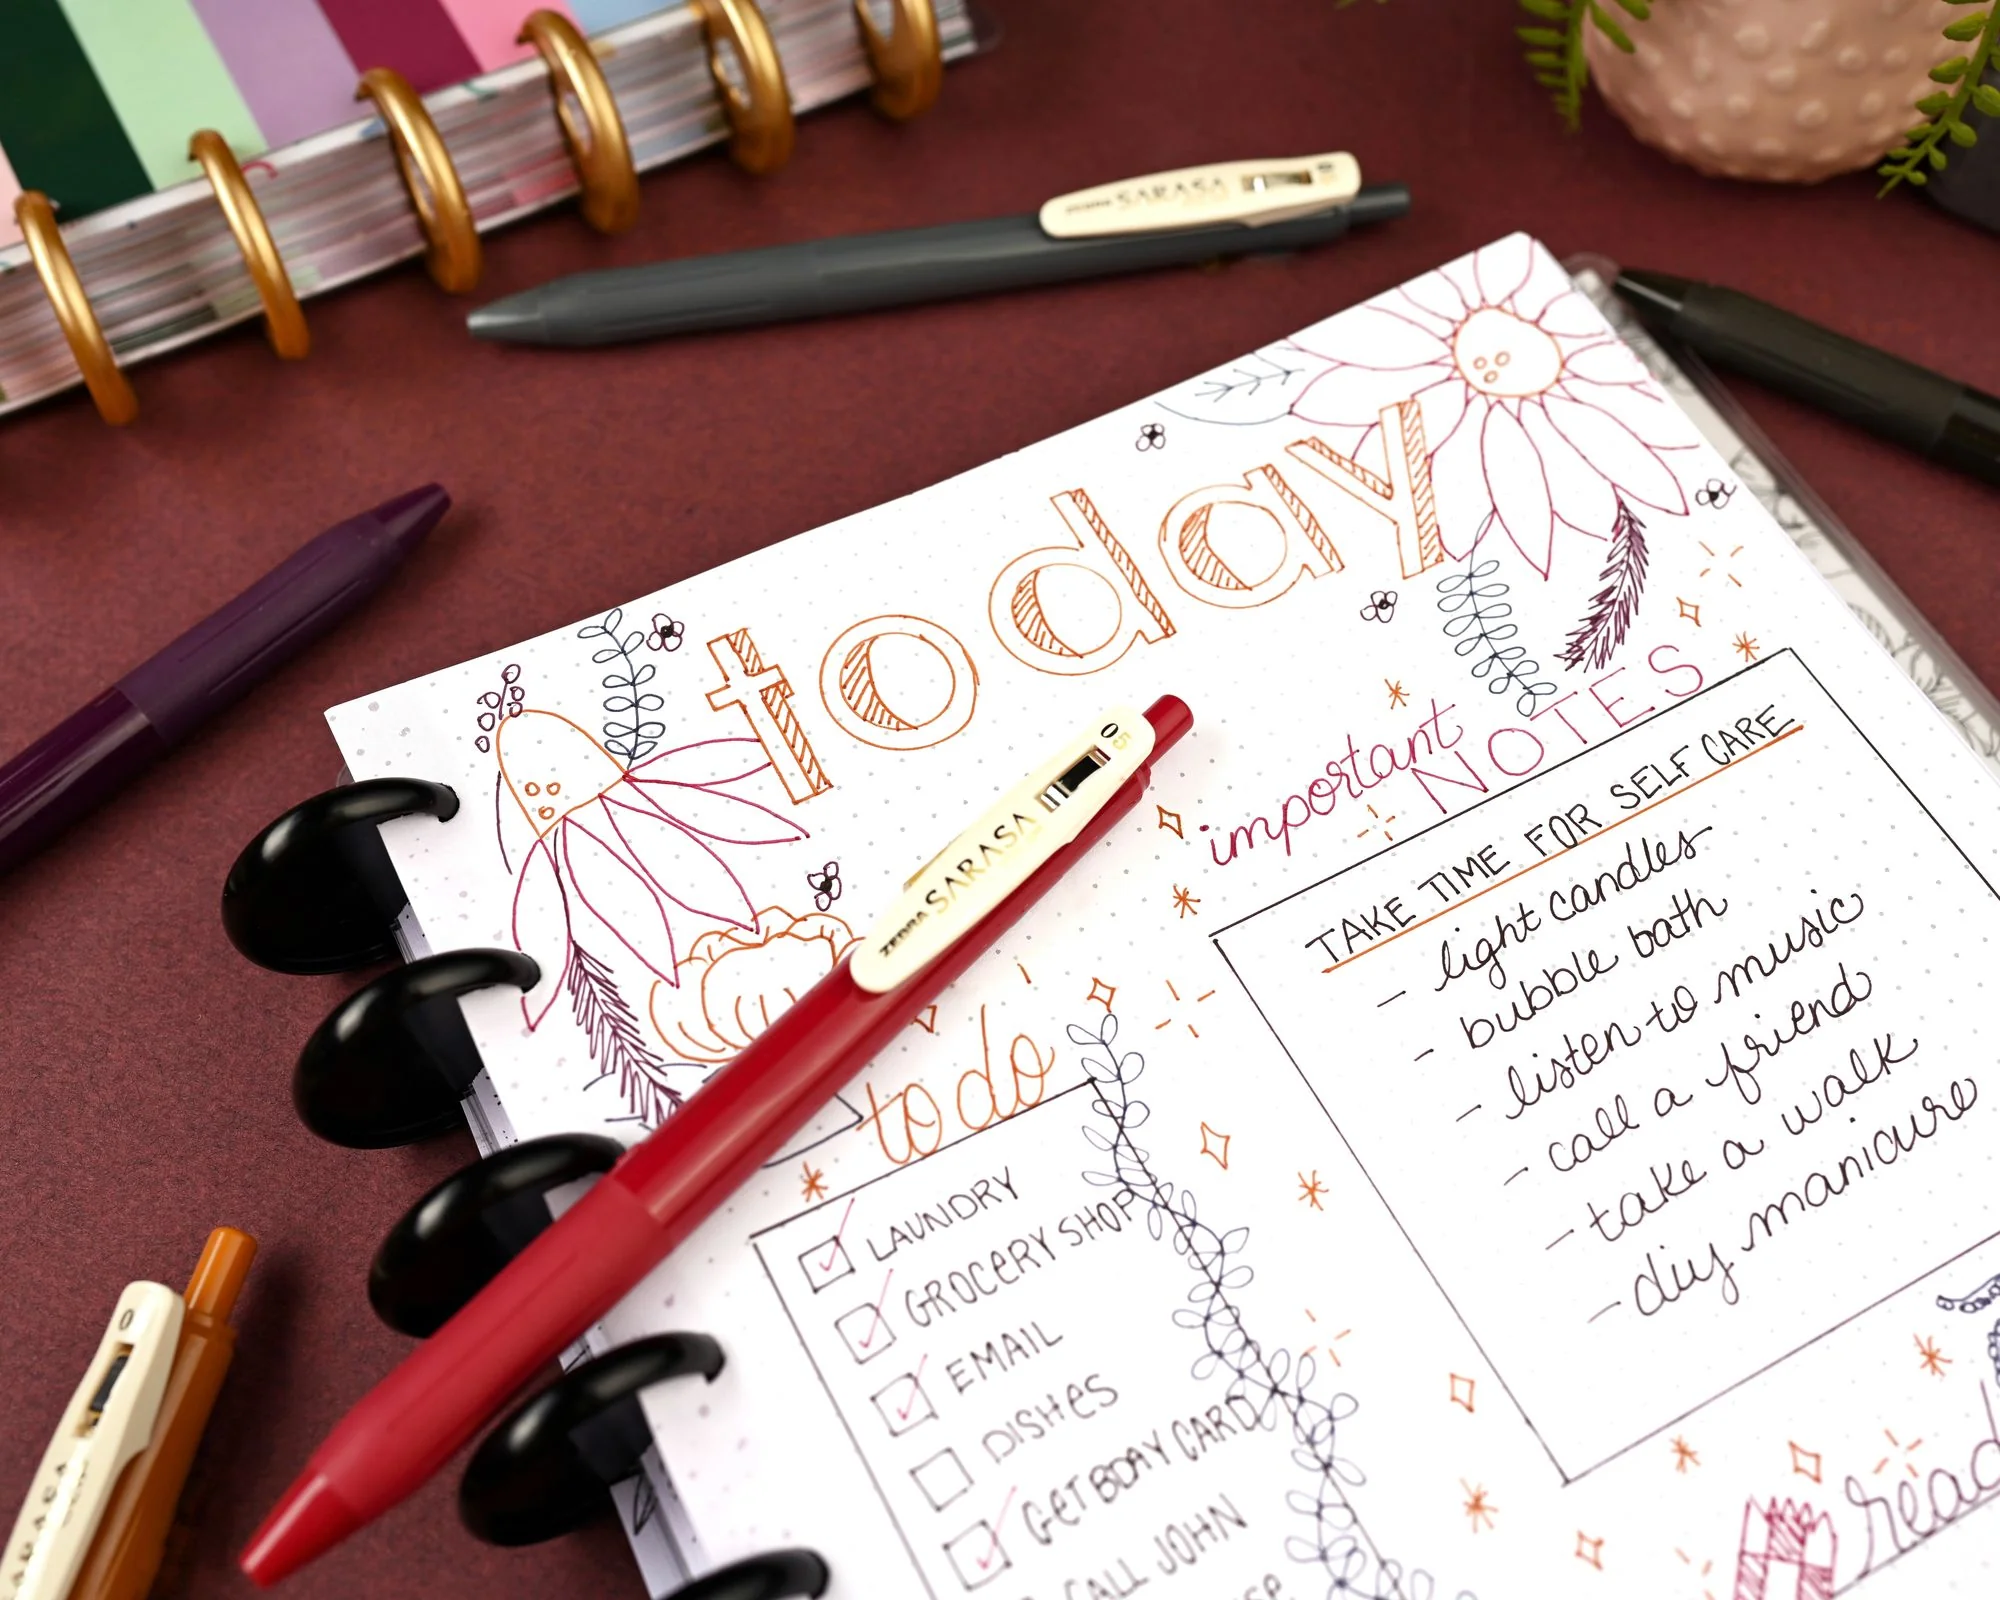 SARASA
today
important
NOTES
TAKE TIME FOR SELF CARE
- light candles
- bubble bath
- listen to music
- call a friend
- take a walk
- diy manicure
05
ZEBRA SARASA
to do
LAUNDRY
GROCERY SHOP
EMAIL
DISHES
GET BDAY CARD
CALL JOHN
read
0